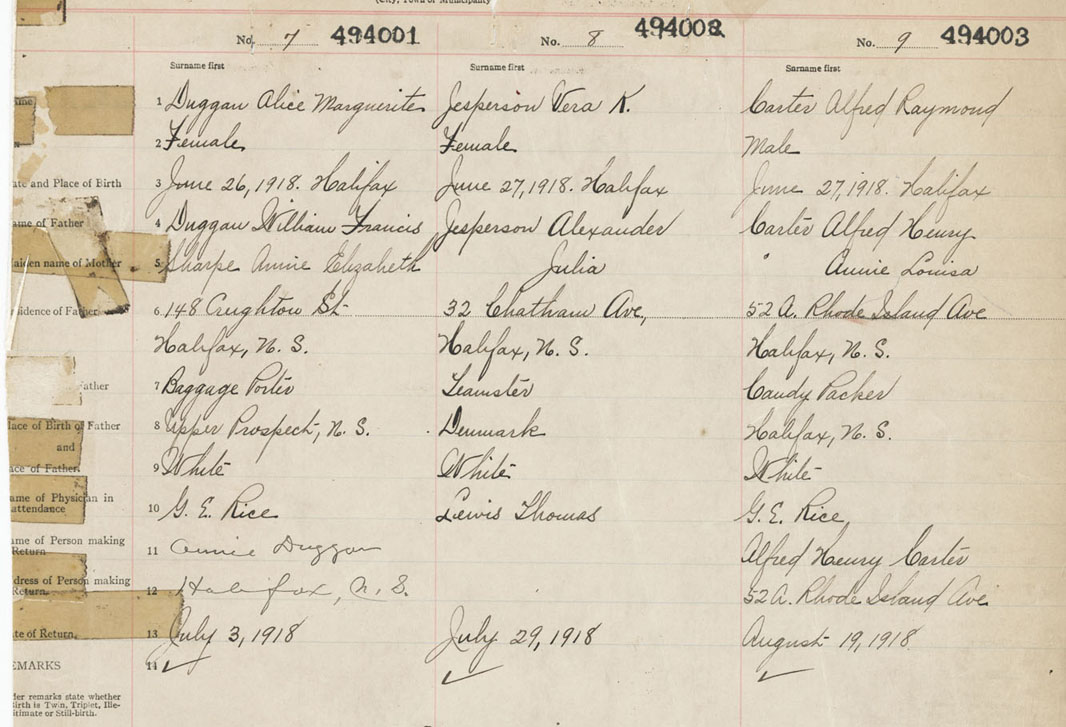 (City, Town or Municipality
No. 7 494001 No. 8 494002 No. 9 494003
Surname first Surname first Surname first
1 Duggan Alice Marguerite Jesperson Vera K. Carter Alfred Raymond
2 Female Female Male
ate and Place of Birth 3 June 26, 1918. Halifax June 27, 1918. Halifax June 27, 1918. Halifax
ame of Father 4 Duggan William Francis Jesperson Alexander Carter Alfred Henry
aiden name of Mother 5 Sharpe Annie Elizabeth Julia " Annie Louisa
sidence of Father 6 148 Creighton St 32 Chatham Ave, 52 A. Rhode Island Ave
Halifax, N. S. Halifax, N. S. Halifax, N. S.
ather 7 Baggage Porter Teamster Candy Packer
lace of Birth of Father 8 Upper Prospect, N. S. Denmark Halifax, N. S.
and
ace of Father. 9 White White White
ame of Physician in
attendance 10 G. E. Rice Lewis Thomas G. E. Rice,
ame of Person making
Return 11 Annie Duggan Alfred Henry Carter
dress of Person making
Return. 12 Halifax, N. S. 52 A. Rhode Island Ave.
te of Return. 13 July 3, 1918 July 29, 1918 August 19, 1918
EMARKS 14
der remarks state whether
irth is Twin, Triplet, Ille-
itimate or Still-birth.